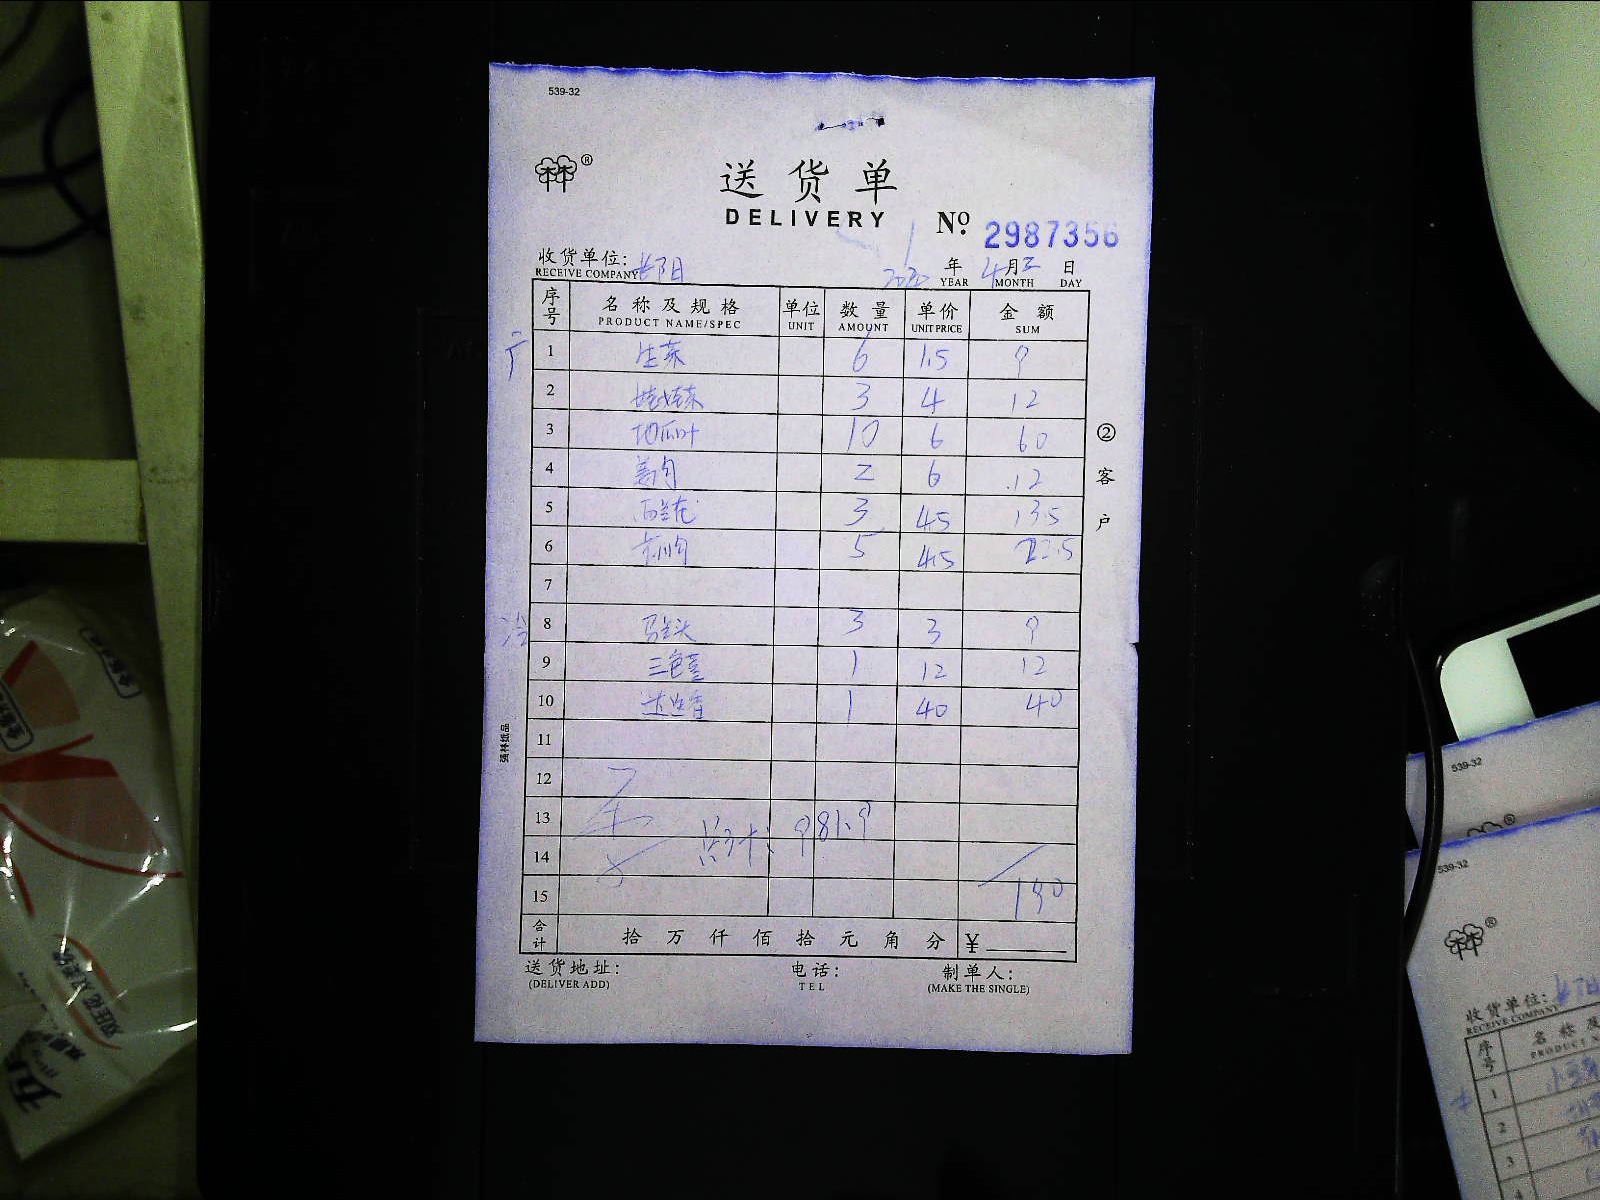 539-32
®
送货单
DELIVERY
No. 2987356
收货单位:
RECEIVE COMPANY
2020 年 4 月 三 日
YEAR MONTH DAY
序号 名称及规格 单位 数量 单价 金额
PRODUCT NAME/SPEC UNIT AMOUNT UNIT PRICE SUM
1 生菜 6 1.5 9
2 娃娃菜 3 4 12
3 地瓜叶 10 6 60
4 2 6 12
5 西兰花 3 4.5 13.5
6 5 4.5 22.5
7
冷
8 马兰头 3 3 9
9 三色堇 1 12 12
10 迷迭香 1 40 40
11
12
13
总计: 981.9
14
15 190
合计 拾 万 仟 佰 拾 元 角 分 ¥
送货地址:
(DELIVER ADD)
电话:
TEL
制单人:
(MAKE THE SINGLE)
② 客户
强林纸品
539-32
539-32
®
收货单位:
RECEIVE COMPANY
序号
1
2
3